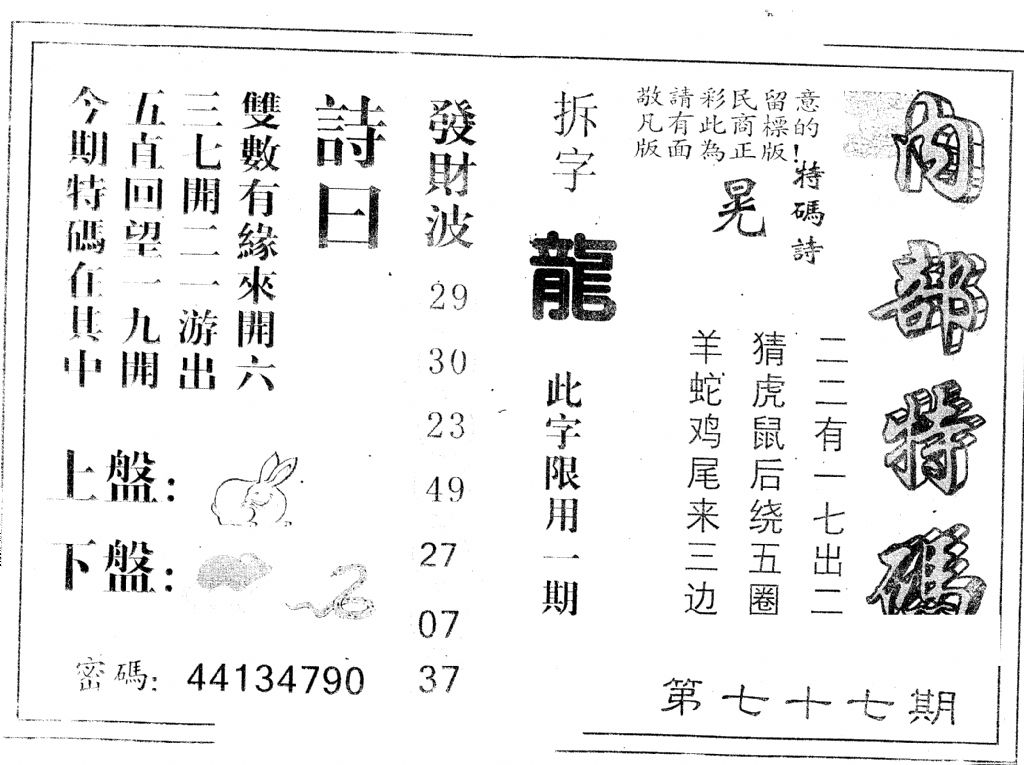 內部特碼
特碼詩
敬請彩民留意
凡有此商標的!
版面為正版
晃
二二有一七出二
猜虎鼠后绕五圈
羊蛇鸡尾来三边
第七十七期
拆字
龍
此字限用一期
發財波
29
30
23
49
27
07
37
詩曰
雙數有緣來開六
三七開二一游出
五直回望一九開
今期特碼在其中
上盤:
下盤:
密碼: 44134790